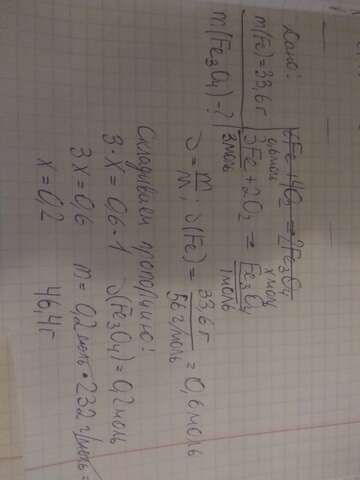 Дано:
m(Fe)=33,6 г
m(Fe3O4)-?
6Fe+4O2 → 2Fe3O4
0,6моль
x моль
3Fe+2O2 → Fe3O4
3моль
1моль
ν = m/M; ν(Fe) = 33,6 г/56 г/моль = 0,6 моль
Складываем пропорцию:
3·x = 0,6·1
ν(Fe3O4)=0,2 моль
3x = 0,6
m = 0,2 моль·232 г/моль=
x = 0,2
46,4г